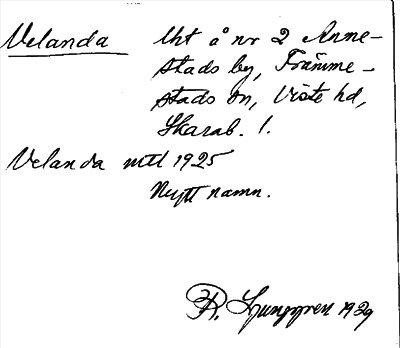 Velanda lht å nr 2 Anne-
stads by, Främme-
stads sn, Viste hd,
Skarab. l.
Velanda mtl 1925
Nytt namn.
R. Ljunggren 1929